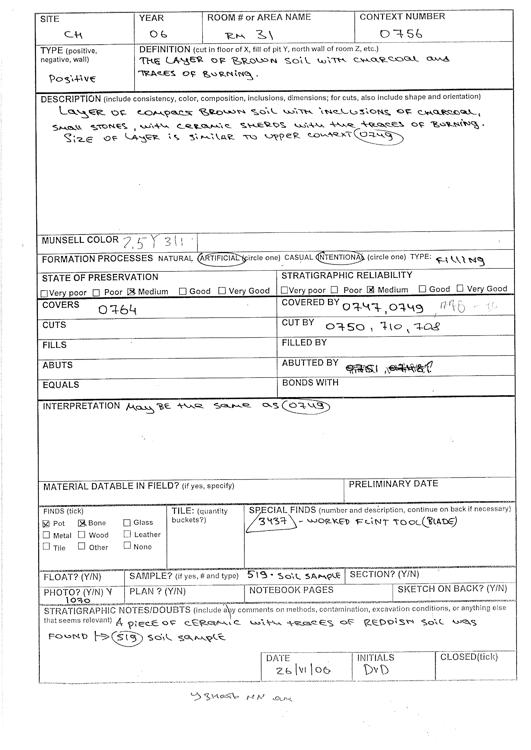 SITE YEAR ROOM # or AREA NAME CONTEXT NUMBER
CH 06 RM 31 0756
TYPE (positive, negative, wall) DEFINITION (cut in floor of X, fill of pit Y, north wall of room Z, etc.)
Positive THE LAYER OF BROWN SOIL WITH CHARCOAL and
TRACES OF BURNING.
DESCRIPTION (include consistency, color, composition, inclusions, dimensions; for cuts, also include shape and orientation)
LAYER OF COMPACT BROWN SOIL WITH INCLUSIONS OF CHARCOAL,
SMALL STONES, WITH CERAMIC SHERDS WITH THE TRACES OF BURNING.
SIZE OF LAYER IS SIMILAR TO UPPER CONTEXT 0749
MUNSELL COLOR 7,5 Y 3/1
FORMATION PROCESSES NATURAL ARTIFICIAL (circle one) CASUAL INTENTIONAL (circle one) TYPE: FILLING
STATE OF PRESERVATION STRATIGRAPHIC RELIABILITY
☐ Very poor ☐ Poor ☒ Medium ☐ Good ☐ Very Good ☐ Very poor ☐ Poor ☒ Medium ☐ Good ☐ Very Good
COVERS 0764 COVERED BY 0747, 0749
CUTS CUT BY 0750, 710, 708
FILLS FILLED BY
ABUTS ABUTTED BY
EQUALS BONDS WITH
INTERPRETATION MAY BE the same as 0749
MATERIAL DATABLE IN FIELD? (if yes, specify) PRELIMINARY DATE
FINDS (tick) TILE: (quantity buckets?) SPECIAL FINDS (number and description, continue on back if necessary)
☒ Pot ☒ Bone ☐ Glass 3437 - WORKED FLINT TOOL (BLADE)
☐ Metal ☐ Wood ☐ Leather
☐ Tile ☐ Other ☐ None
FLOAT? (Y/N) SAMPLE? (if yes, # and type) 519 - SOIL SAMPLE SECTION? (Y/N)
PHOTO? (Y/N) Y PLAN ? (Y/N) NOTEBOOK PAGES SKETCH ON BACK? (Y/N)
1070
STRATIGRAPHIC NOTES/DOUBTS (include any comments on methods, contamination, excavation conditions, or anything else
that seems relevant) A PIECE OF CERAMIC WITH TRACES OF REDDISH SOIL WAS
FOUND → 519 SOIL SAMPLE
DATE INITIALS CLOSED(tick)
26/VI/06 DVD